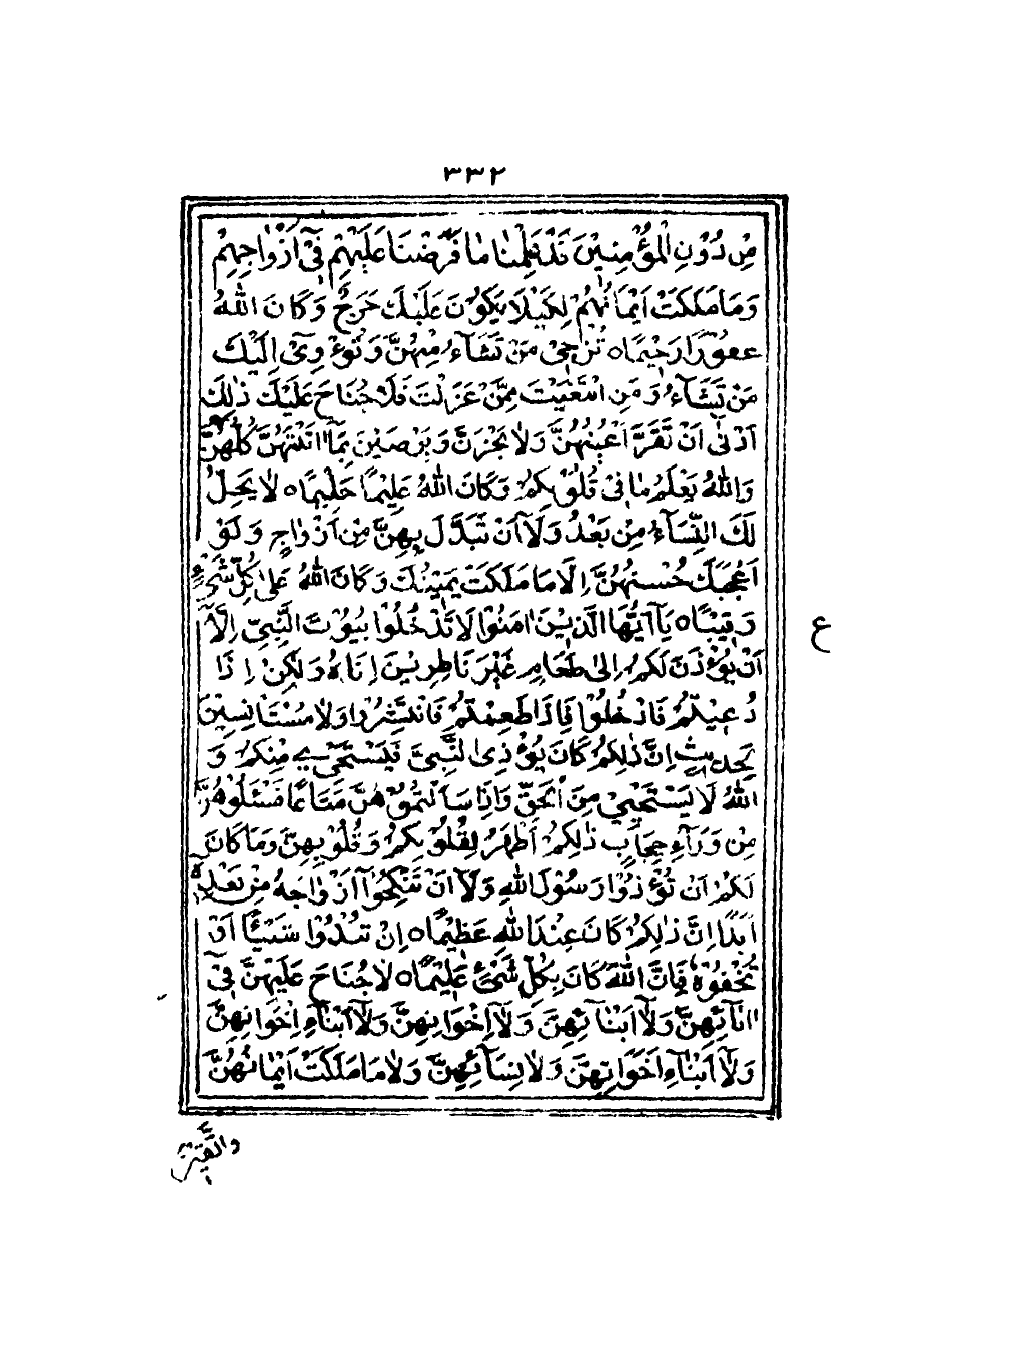 ٣٣٢
مِنْ دُوْنِ الْمُؤْمِنِيْنَ قَدْ عَلِمْنَا مَا فَرَضْنَا عَلَيْهِمْ فِيْٓ اَزْوَاجِهِمْ
وَمَا مَلَكَتْ اَيْمَانُهُمْ لِكَيْلَا يَكُوْنَ عَلَيْكَ حَرَجٌ وَكَانَ اللّٰهُ
غفُوْرًا رَحِيْمًا ه تُرْجِيْ مَنْ تَشَآءُ مِنْهُنَّ وَتُؤْوِيْٓ اِلَيْكَ
مَنْ تَشَآءُ وَمَنِ ابْتَغَيْتَ مِمَّنْ عَزَلْتَ فَلَا جُنَاحَ عَلَيْكَ ذٰلِكَ
اَدْنٰٓى اَنْ تَقَرَّ اَعْيُنُهُنَّ وَلَا يَحْزَنَّ وَيَرْضَيْنَ بِمَآ اٰتَيْتَهُنَّ كُلُّهُنَّ
وَاللّٰهُ يَعْلَمُ مَا فِيْ قُلُوْبِكُمْ وَكَانَ اللّٰهُ عَلِيْمًا حَلِيْمًا ه لَا يَحِلُّ
لَكَ النِّسَآءُ مِنْ بَعْدُ وَلَآ اَنْ تَبَدَّلَ بِهِنَّ مِنْ اَزْوَاجٍ وَلَوْ
اَعْجَبَكَ حُسْنُهُنَّ اِلَّا مَا مَلَكَتْ يَمِيْنُكَ وَكَانَ اللّٰهُ عَلٰى كُلِّ شَيْءٍ
رَقِيْبًا ه يَآ اَيُّهَا الَّذِيْنَ اٰمَنُوْا لَا تَدْخُلُوْا بُيُوْتَ النَّبِيِّ اِلَّآ
اَنْ يُؤْذَنَ لَكُمْ اِلٰى طَعَامٍ غَيْرَ نَاظِرِيْنَ اِنَاهُ وَلٰكِنْ اِذَا
دُعِيْتُمْ فَادْخُلُوْا فَاِذَا طَعِمْتُمْ فَانْتَشِرُوْا وَلَا مُسْتَاْنِسِيْنَ
لِحَدِيْثٍ اِنَّ ذٰلِكُمْ كَانَ يُؤْذِى النَّبِيَّ فَيَسْتَحْيٖ مِنْكُمْ وَ
اللّٰهُ لَا يَسْتَحْيٖ مِنَ الْحَقِّ وَاِذَا سَاَلْتُمُوْهُنَّ مَتَاعًا فَسْئَلُوْهُنَّ
مِنْ وَرَآءِ حِجَابٍ ذٰلِكُمْ اَطْهَرُ لِقُلُوْبِكُمْ وَقُلُوْبِهِنَّ وَمَا كَانَ
لَكُمْ اَنْ تُؤْذُوْا رَسُوْلَ اللّٰهِ وَلَآ اَنْ تَنْكِحُوْٓا اَزْوَاجَهُ مِنْ بَعْدِهٖٓ
اَبَدًا اِنَّ ذٰلِكُمْ كَانَ عِنْدَ اللّٰهِ عَظِيْمًا ه اِنْ تُبْدُوْا شَيْئًا اَوْ
تُخْفُوْهُ فَاِنَّ اللّٰهَ كَانَ بِكُلِّ شَيْءٍ عَلِيْمًا ه لَا جُنَاحَ عَلَيْهِنَّ فِيْٓ
اٰبَآئِهِنَّ وَلَآ اَبْنَآئِهِنَّ وَلَآ اِخْوَانِهِنَّ وَلَآ اَبْنَآءِ اِخْوَانِهِنَّ
وَلَآ اَبْنَآءِ اَخَوَاتِهِنَّ وَلَا نِسَآئِهِنَّ وَلَا مَا مَلَكَتْ اَيْمَانُهُنَّ
ع